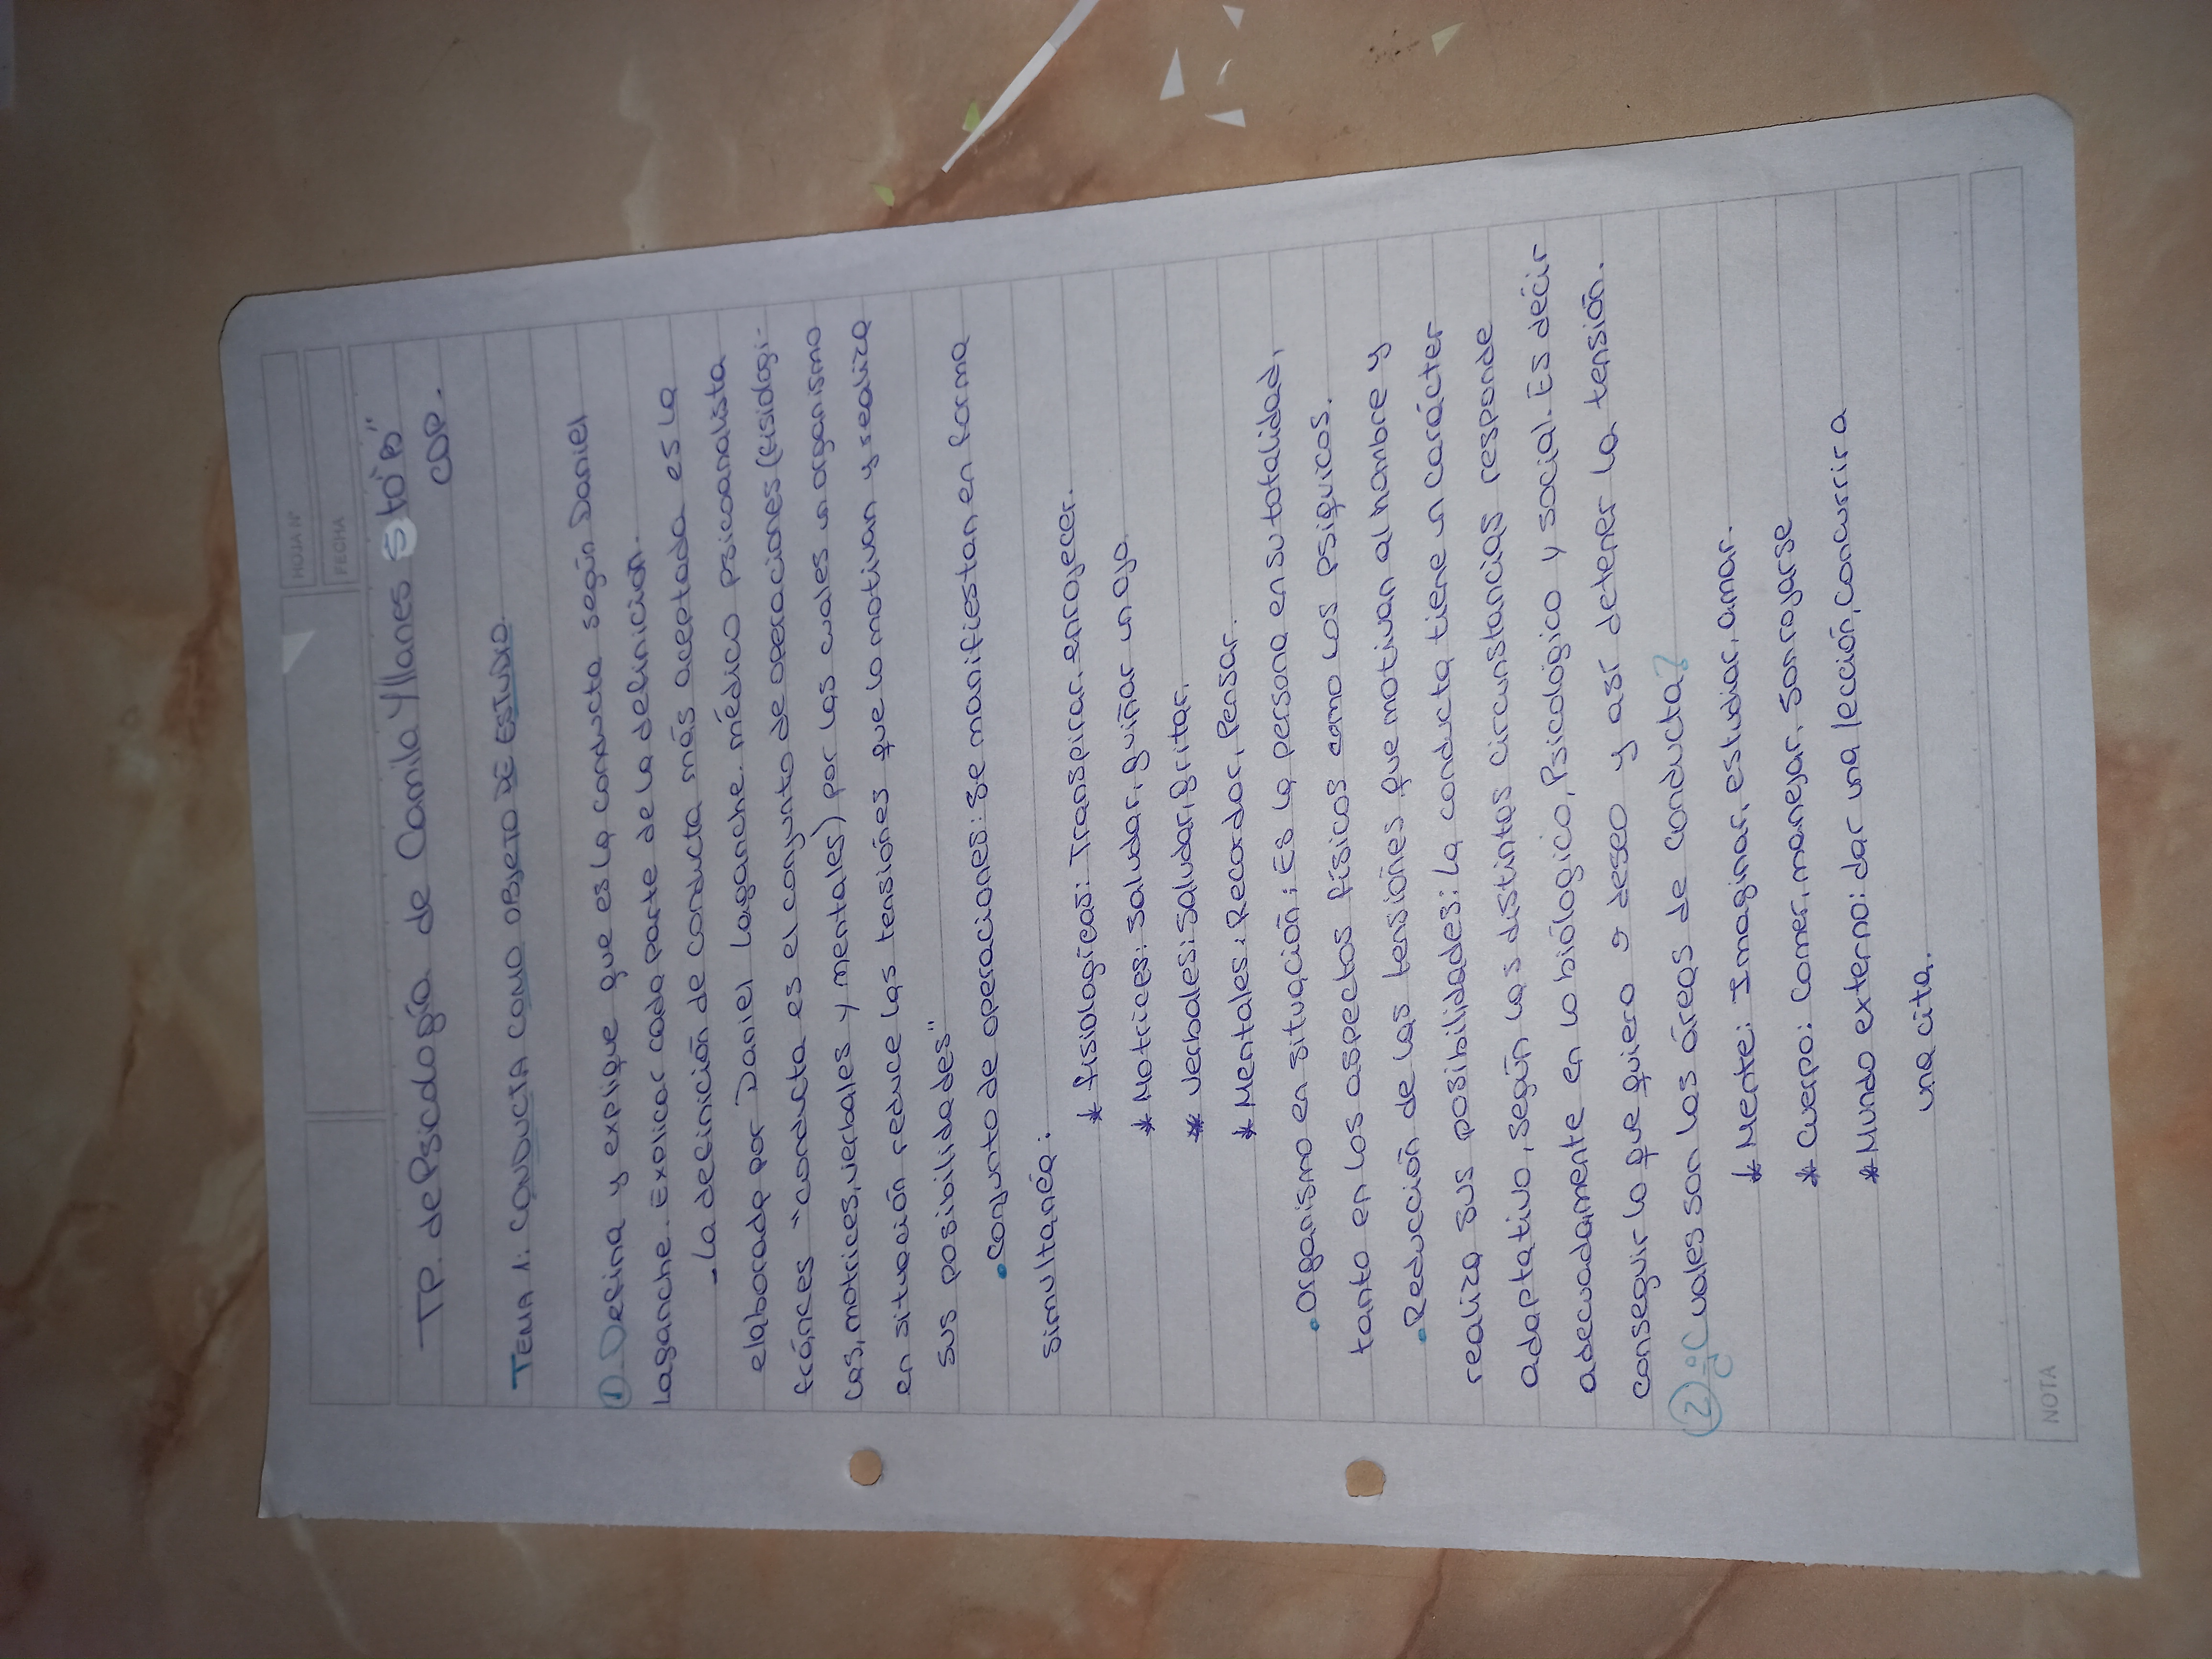 HOJA N°
FECHA
TP. de Psicología de Camila Yllanes 5to "B"
COP.
TEMA 1: CONDUCTA COMO OBJETO DE ESTUDIO.
① Defina y explique que es la conducta según Daniel
Laganche. Explicar cada parte de la definición.
- La definición de conducta más aceptada es la
elaborada por Daniel Laganche. médico psicoanalista
fránces "conducta es el conjunto de operaciones (fisiologi-
cas, motrices, verbales y mentales) por las cuales un organismo
en situación reduce las tensiónes que lo motivan y realiza
sus posibilidades"
• Conjunto de operaciones: se manifiestan en forma
simultanéa:
* fisiologícas: Transpirar, enrojecer.
* Motrices: saludar, guiñar un ojo.
* Verbales: saludar, gritar.
* Mentales: Recordar, Pensar.
• Organismo en situación: Es la persona en su totalidad,
tanto en los aspectos físicos como los psiquicos.
• Reducción de las tensiones que motivan al hombre y
realiza sus posibilidades: La conducta tiene un carácter
adaptativo, según las distintas circunstancias responde
adecuadamente en lo biólogico, Psicológico y social. Es decir
conseguir lo que quiero o deseo y así detener la tensión.
② ¿Cuales son las áreas de conducta?
* Mente: Imaginar, estudiar, amar.
* Cuerpo: Comer, manejar, sonrojarse
* Mundo externo: dar una lección, concurrir a
una cita.
NOTA